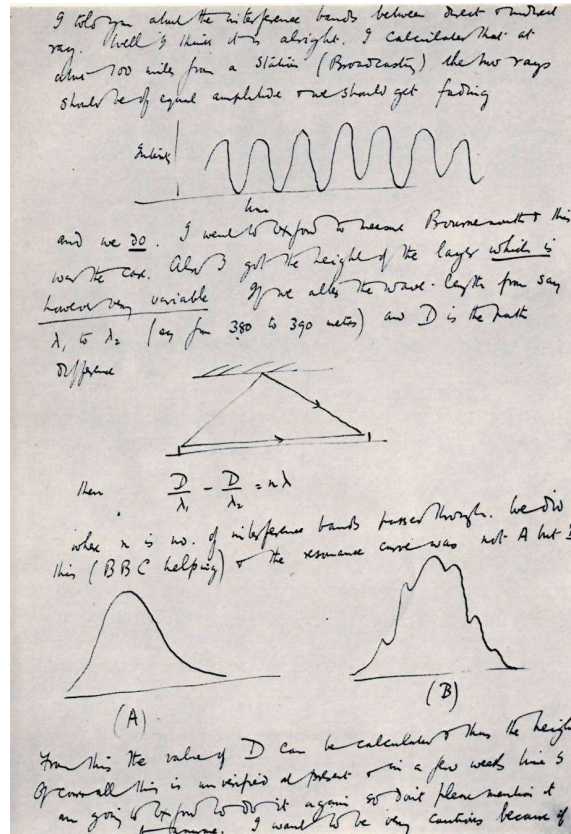 I told you about the interference bands between direct & indirect
ray. Well I think it is alright. I calculated that at
about 100 miles from a station (Broadcasting) the two rays
should be of equal amplitude & we should get fading
time
and we do. I went to Oxford to measure Bournemouth & this
was the case. Also I got the height of the layer which is
however very variable If we alter the wave-length from say
λ₁ to λ₂ (say from 380 to 390 metres) and D is the path
difference
then D/λ₁ - D/λ₂ = nλ
where n is no. of interference bands passed through. We did
this (BBC helping) & the resonance curve was not A but B
(A) (B)
From this the value of D can be calculated & thus the height
Of course all this is unverified at present & in a few weeks time
am going to Oxford to do it again so don't please mention it
I want to be very cautious because of